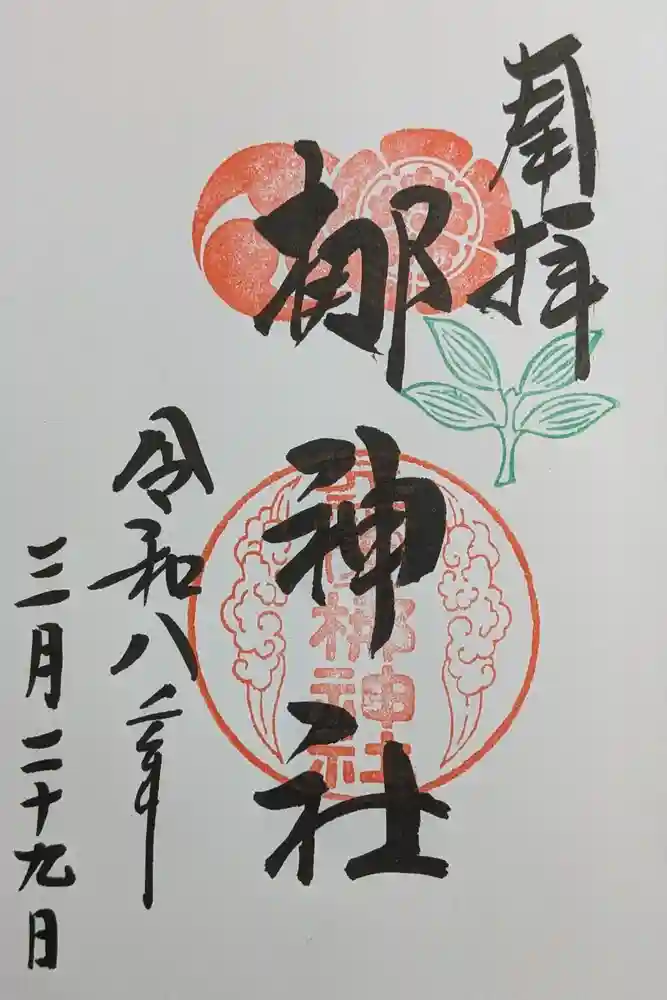 奉拝
梛神社
令和八年
三月二十九日
梛神社